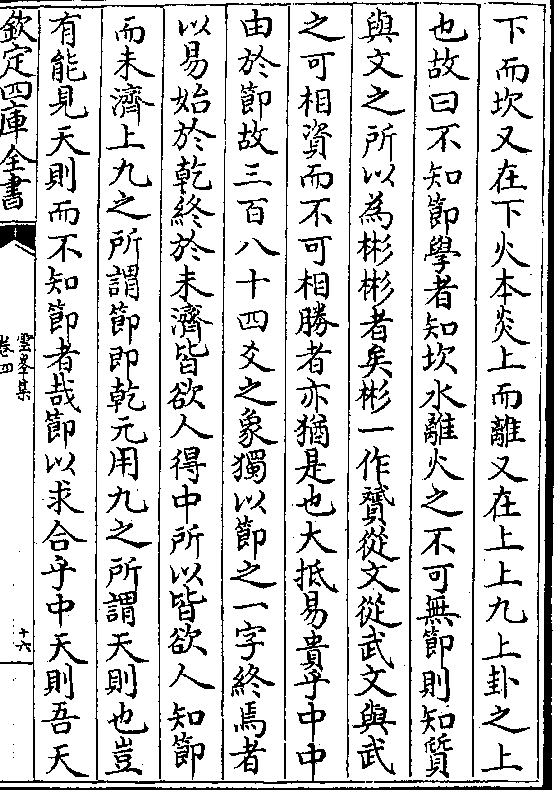 下而坎又在下火本炎上而離又在上上九上卦之上
也故曰不知節學者知坎水離火之不可無節則知質
與文之所以為彬彬者矣彬一作贇從文從武文與武
之可相資而不可相勝者亦猶是也大抵易貴乎中中
由於節故三百八十四爻之象獨以節之一字終焉者
以易始於乾終於未濟皆欲人得中所以皆欲人知節
而未濟上九之所謂節即乾元用九之所謂天則也豈
有能見天則而不知節者哉節以求合乎中天則吾天
欽定四庫全書
雲峯集
卷四
十六